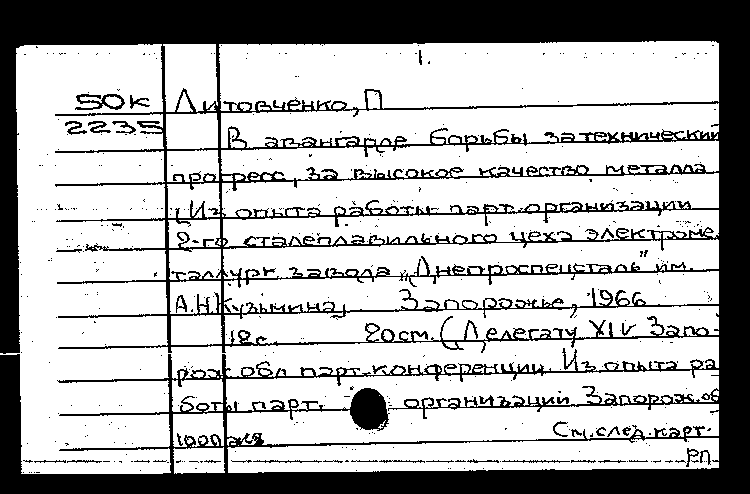 1.
50к Литовченко, П
2235
В авангарде борьбы за технический
прогресс, за высокое качество металла
(Из опыта работы парт. организации
2-го сталеплавильного цеха электроме
таллург. завода „Днепроспецсталь" им.
А.Н.Кузьмина) Запорожье, 1966
12с. 20см. (Делегату XIV Запо-
рож. обл парт. конференции. Из опыта ра
боты парт. организаций Запорож. об
1000 экз См. след. карт.
рп